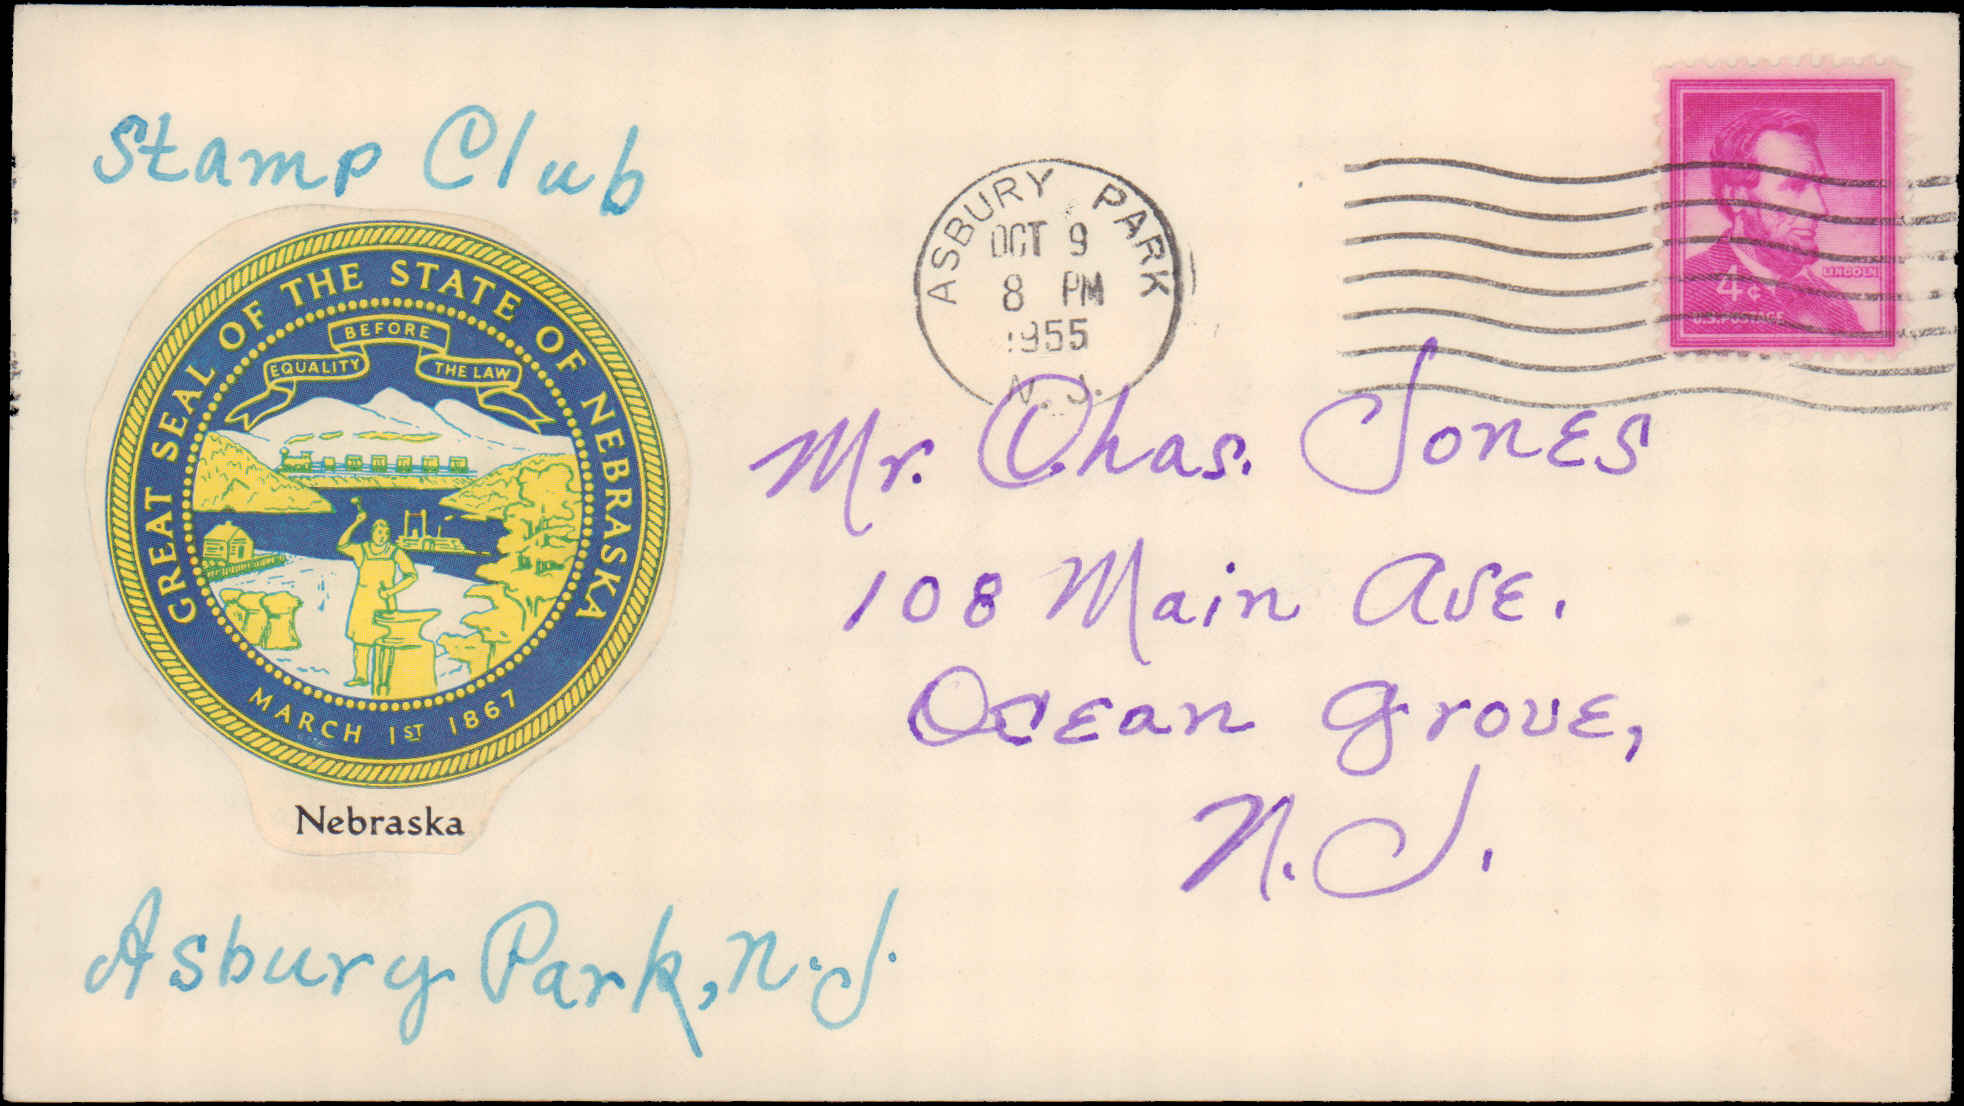 Stamp Club
GREAT SEAL OF THE STATE OF NEBRASKA
EQUALITY BEFORE THE LAW
MARCH 1ST 1867
Nebraska
Asbury Park, N.J.
ASBURY PARK
OCT 9
8 PM
1955
N. J.
LINCOLN
4¢
U.S. POSTAGE
Mr. Chas. Jones
108 Main Ave.
Ocean Grove,
N.J.